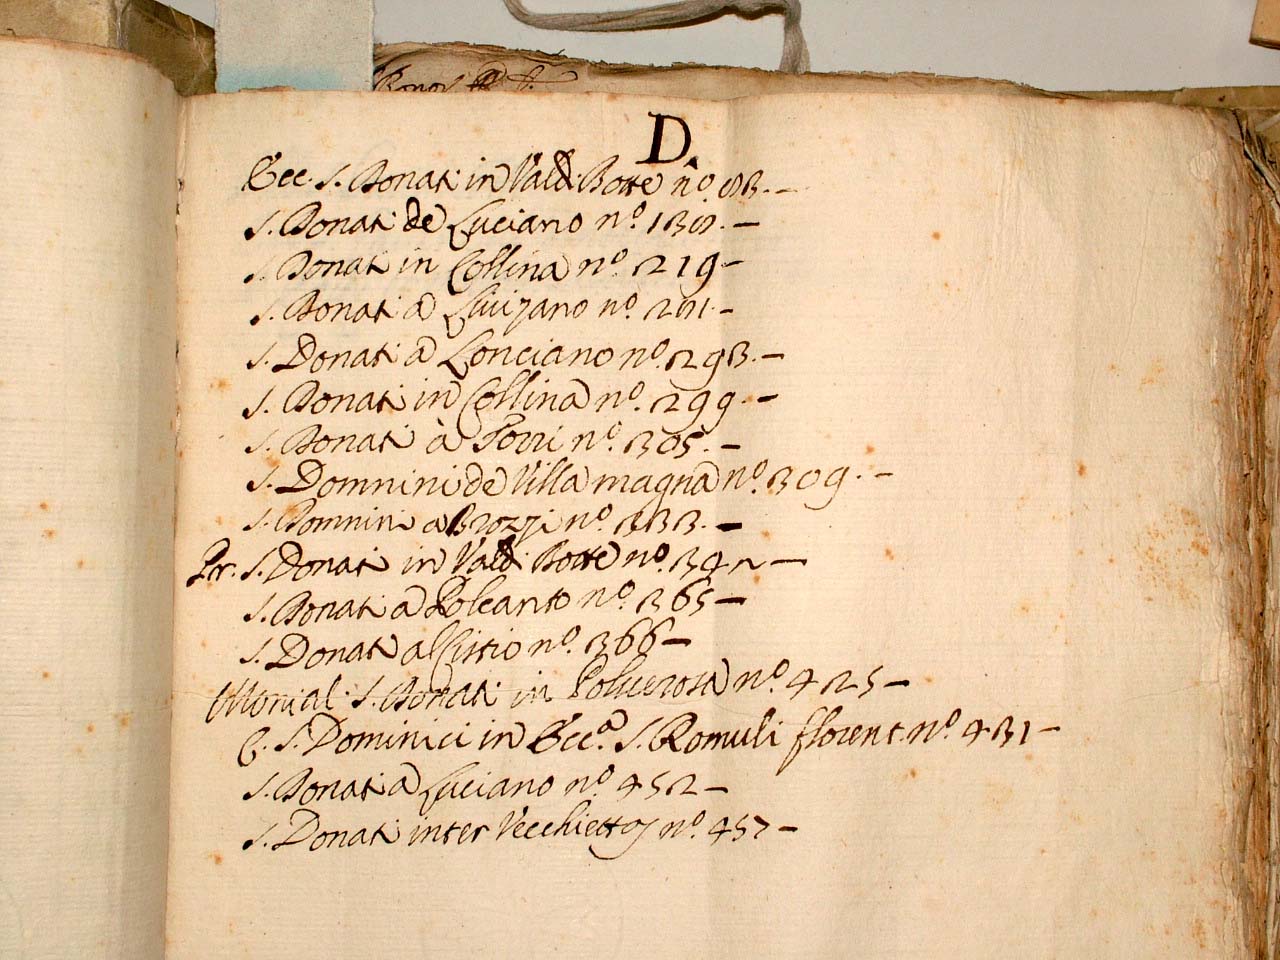 D.
Ecc. S. Donati in Vald. Botte nº. 83.-
S. Donati de Luciano nº. 138.-
S. Donati in Collina nº. 219-
S. Donati a Livizano nº. 281.-
S. Donati a Lonciano nº. 293.-
S. Donati in Collina nº. 299.-
S. Donati à Porri nº. 305.-
S. Domnini de Villa magna nº. 309.-
S. Domnini a Brozzi nº. 333.-
Pr. S. Donati in Vald. Botte nº. 342-
S. Donati a Polcanto nº. 365-
S. Donati al Cistio nº. 366-
Monial. S. Donati in Polverosa nº. 425-
C. S. Dominici in Ecc.ª S. Romuli florent. nº. 431-
S. Donati a Luciano nº. 452-
S. Donati inter Vecchiettos nº. 457-